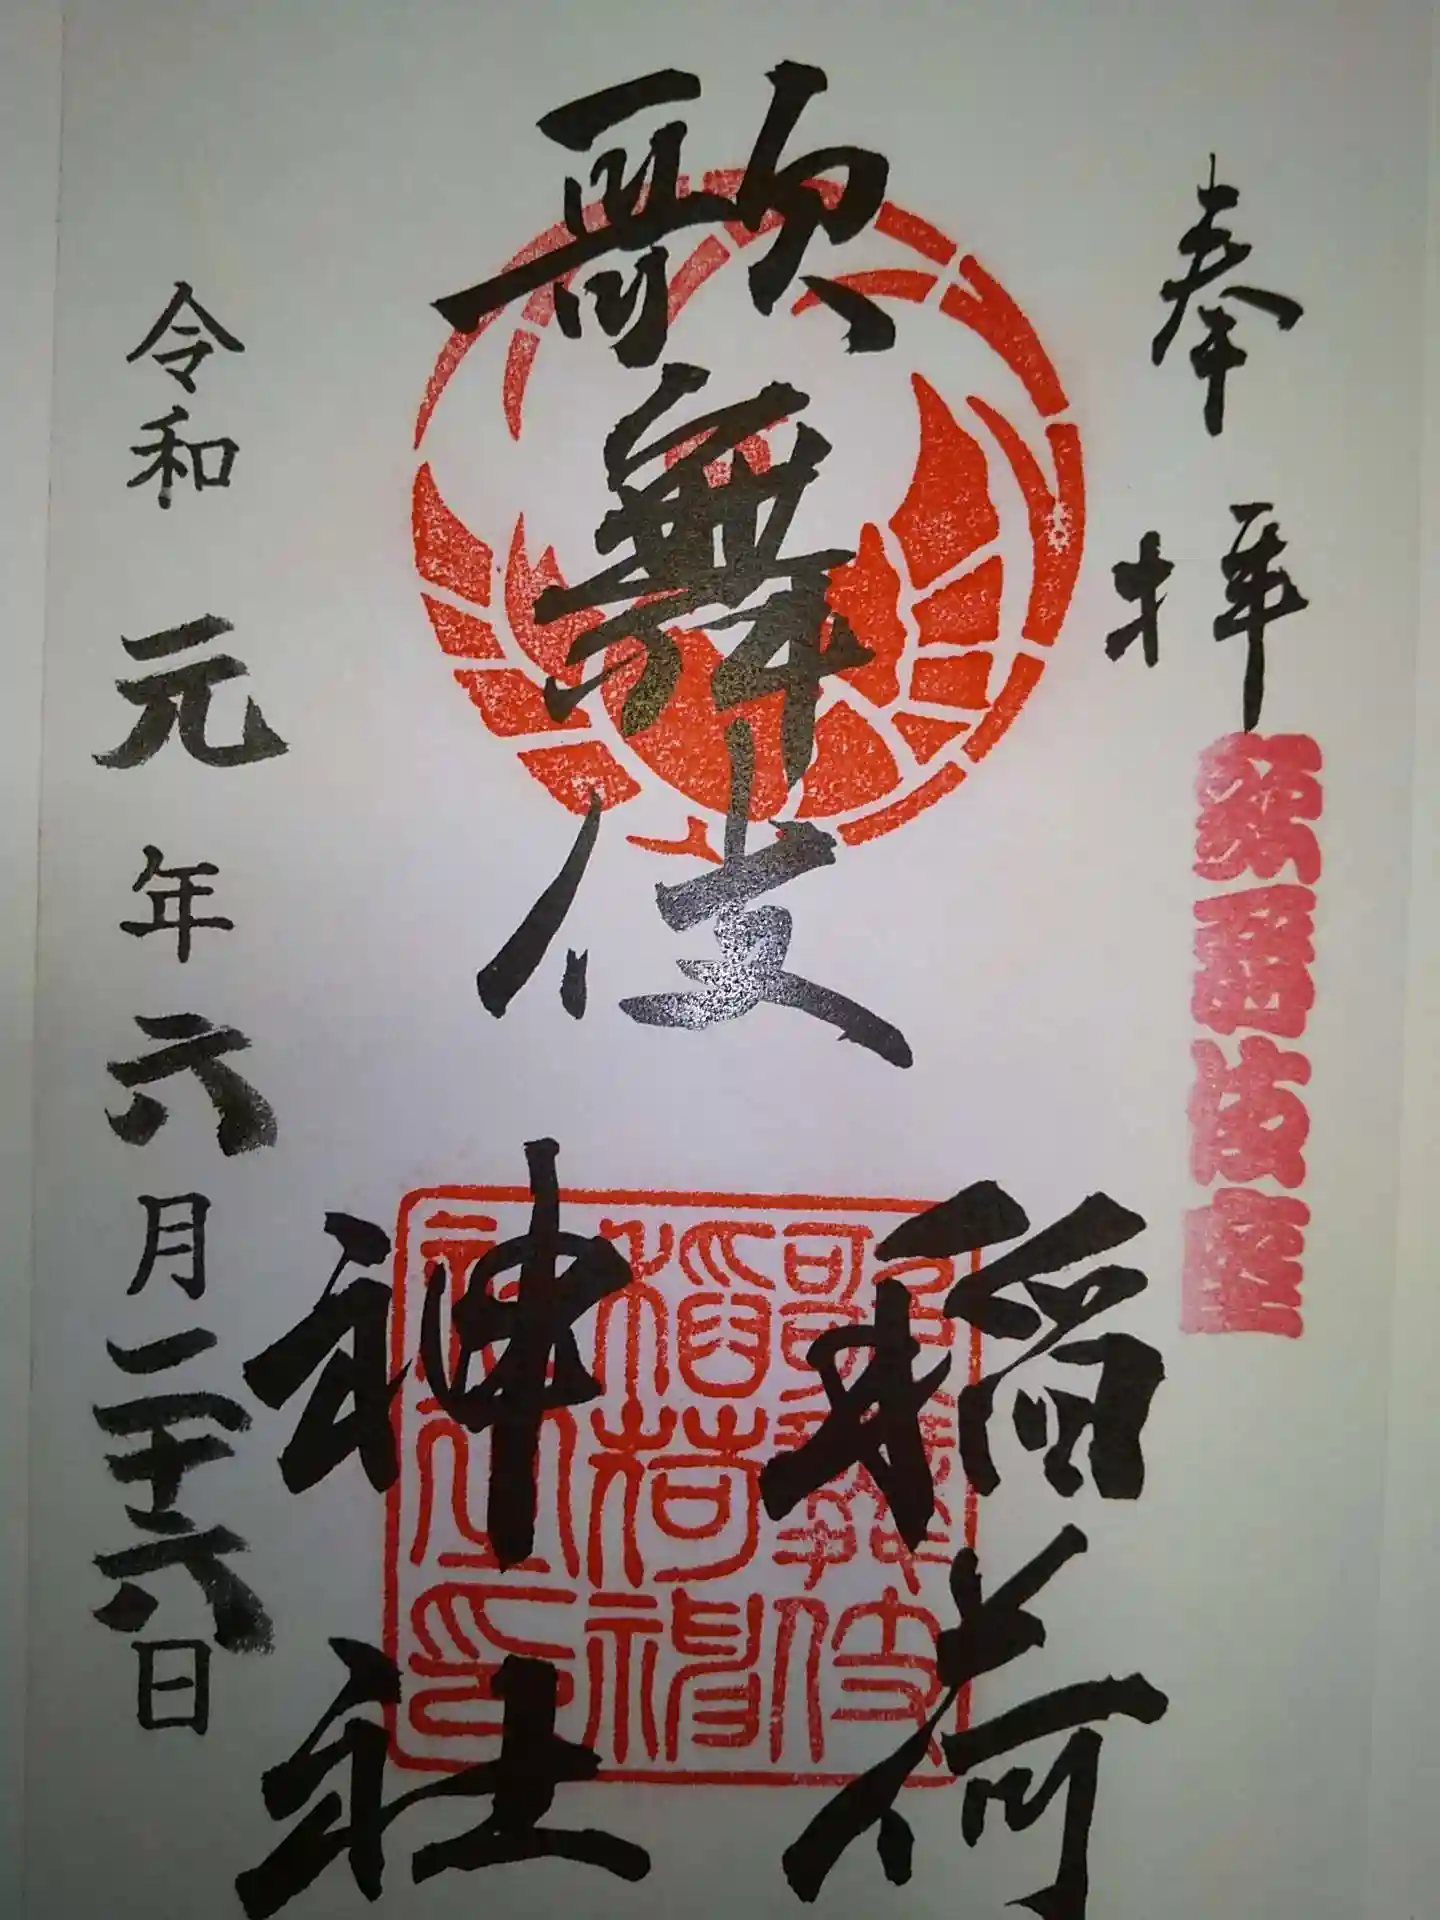 奉拝
歌舞伎座
歌舞伎
稲荷
神社
歌舞伎
稲荷神
社印
令和元年六月二十六日